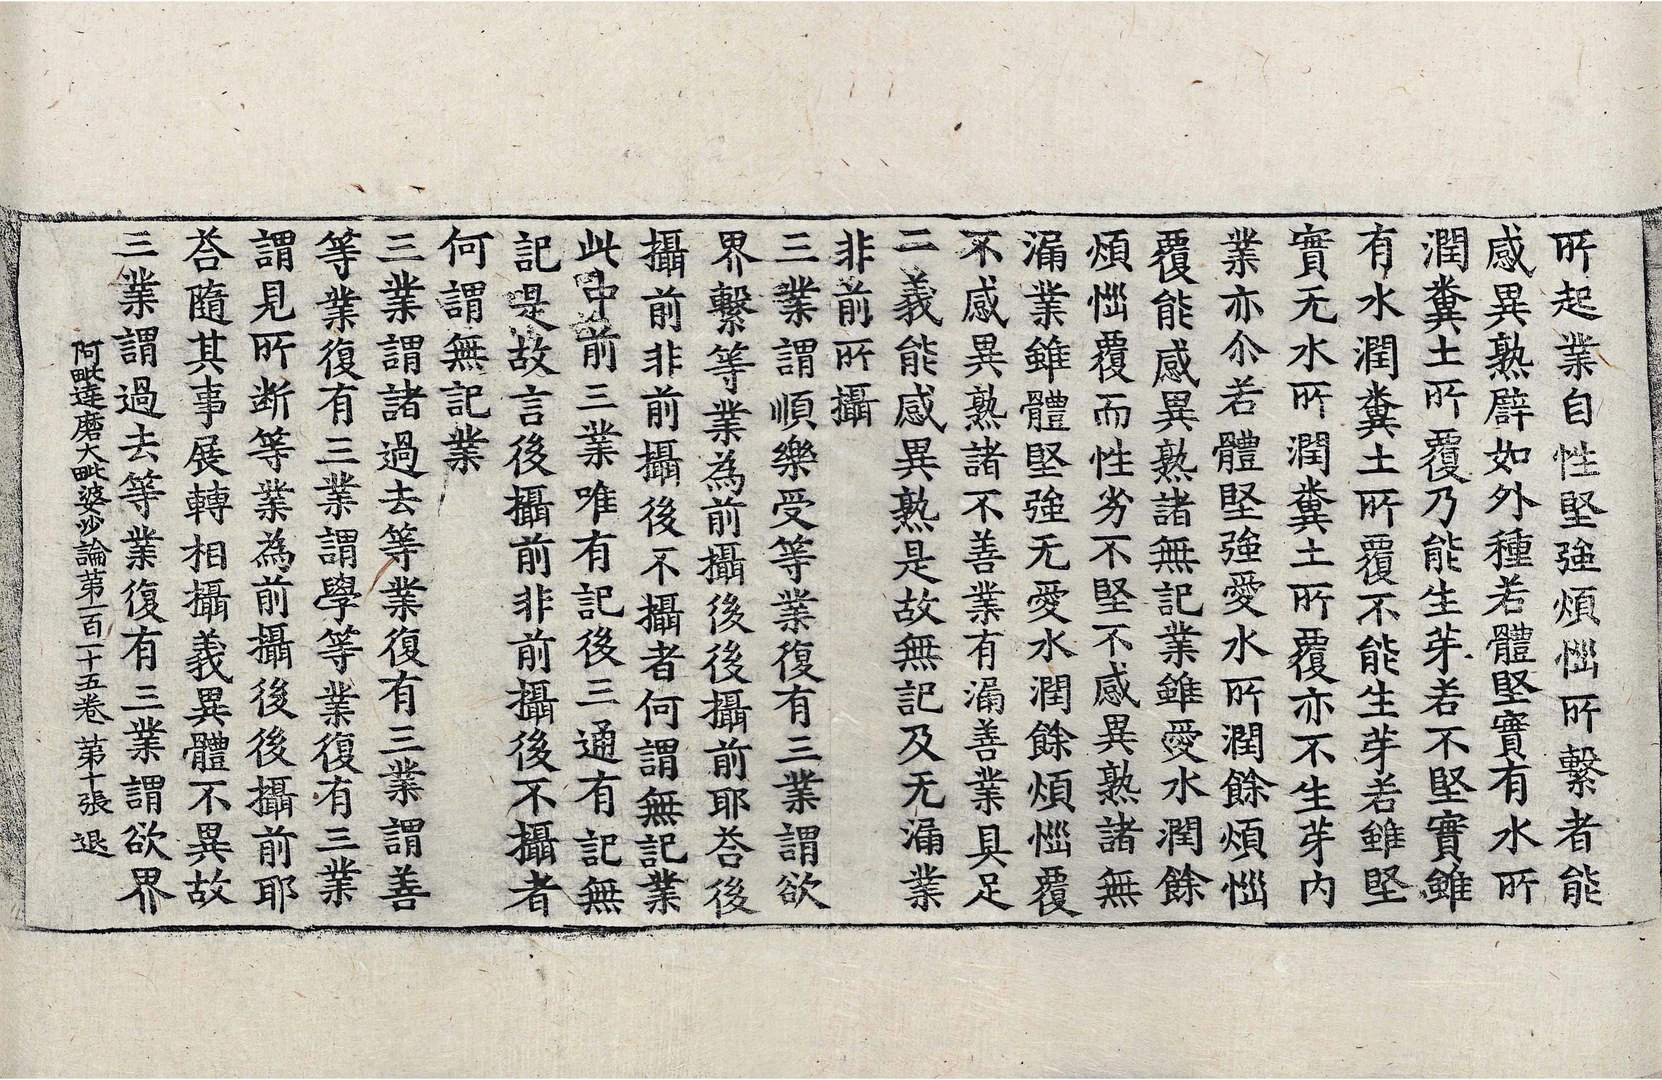 所起業自性堅強煩惱所繫者能
感異熟譬如外種若體堅實有水所
潤糞土所覆乃能生芽若不堅實雖
有水潤糞土所覆不能生芽若雖堅
實无水所潤糞土所覆亦不生芽內
業亦尒若體堅強愛水所潤餘煩惱
覆能感異熟諸無記業雖愛水潤餘
煩惱覆而性劣不堅不感異熟諸無
漏業雖體堅強无愛水潤餘煩惱覆
不感異熟諸不善業有漏善業具足
二義能感異熟是故無記及无漏業
非前所攝
三業謂順樂受等業復有三業謂欲
界繫等業為前攝後後攝前耶荅後
攝前非前攝後不攝者何謂無記業
此中前三業唯有記後三通有記無
記是故言後攝前非前攝後不攝者
何謂無記業
三業謂諸過去等業復有三業謂善
等業復有三業謂學等業復有三業
謂見所断等業為前攝後後攝前耶
荅隨其事展轉相攝義異體不異故
三業謂過去等業復有三業謂欲界
阿毗達磨大毗婆沙論第一百一十五卷 第十張 退